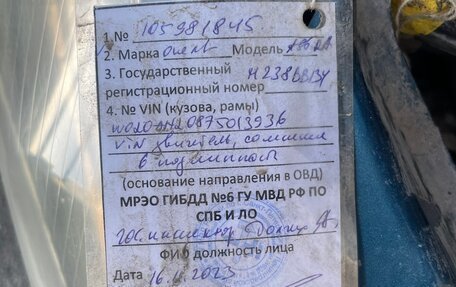 1 № 105981845
2. Марка опель Модель
3. Государственный
регистрационный номер
4. № VIN (кузова, рамы)
VIN двигатель, сомнения
в подлинности
(основание направления в ОВД)
МРЭО ГИБДД №6 ГУ МВД РФ ПО
СПБ И ЛО
Гос. инспектор
ФИО должность лица
Дата 16.11.2023